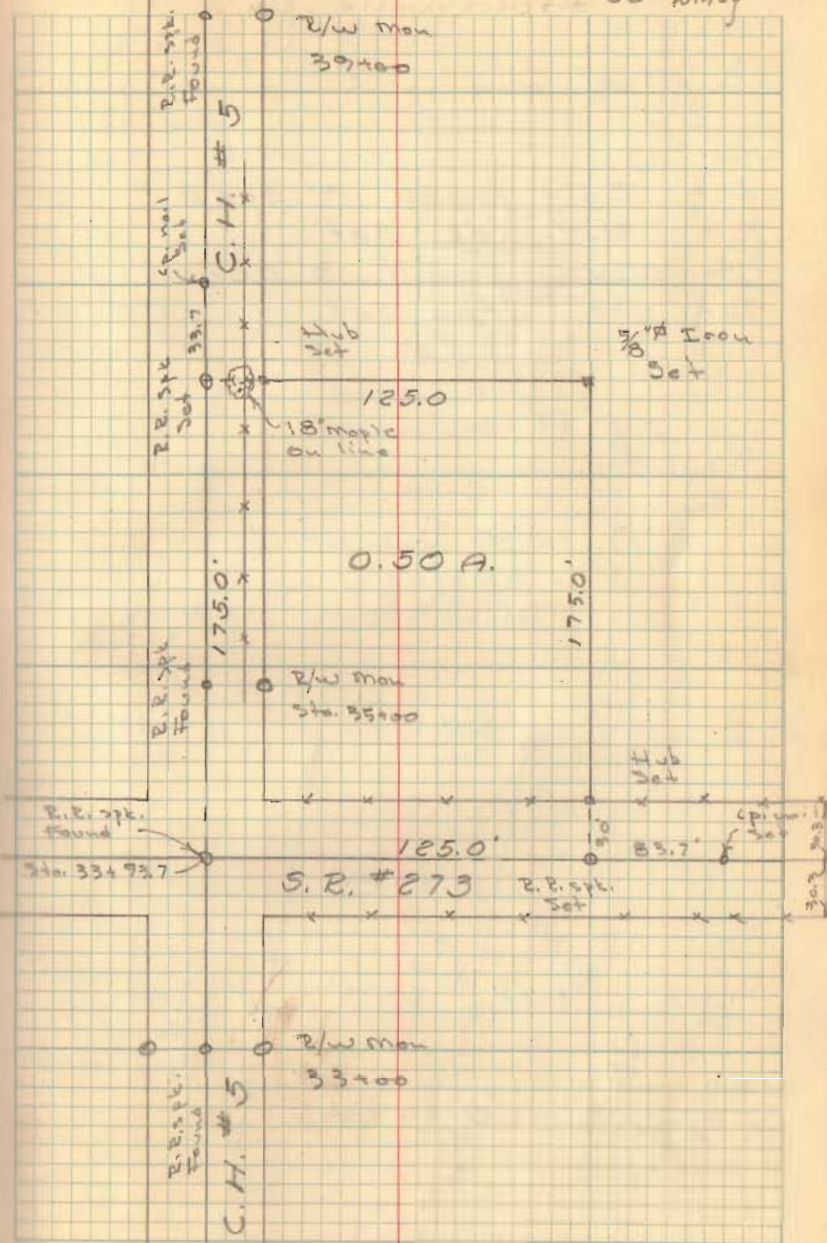 R/W Mon
39+00
R.R. spk.
Found
C. H. # 5
Sp. nail
Set
33.7
R.R. Spk
Set
Hub
Set
5/8"Ø Iron
Set
125.0
18" maple
on line
0.50 A.
175.0'
175.0'
R.R. Spk
Found
R/W Mon
Sta. 35+00
Hub
Set
R.R. spk.
Found
Sta. 33+93.7
125.0'
30'
83.7'
Set
30.3
30.3
S. R. # 273
R.R. spk.
Set
R/W Mon
33+00
R.R. spk.
Found
C. H. # 5